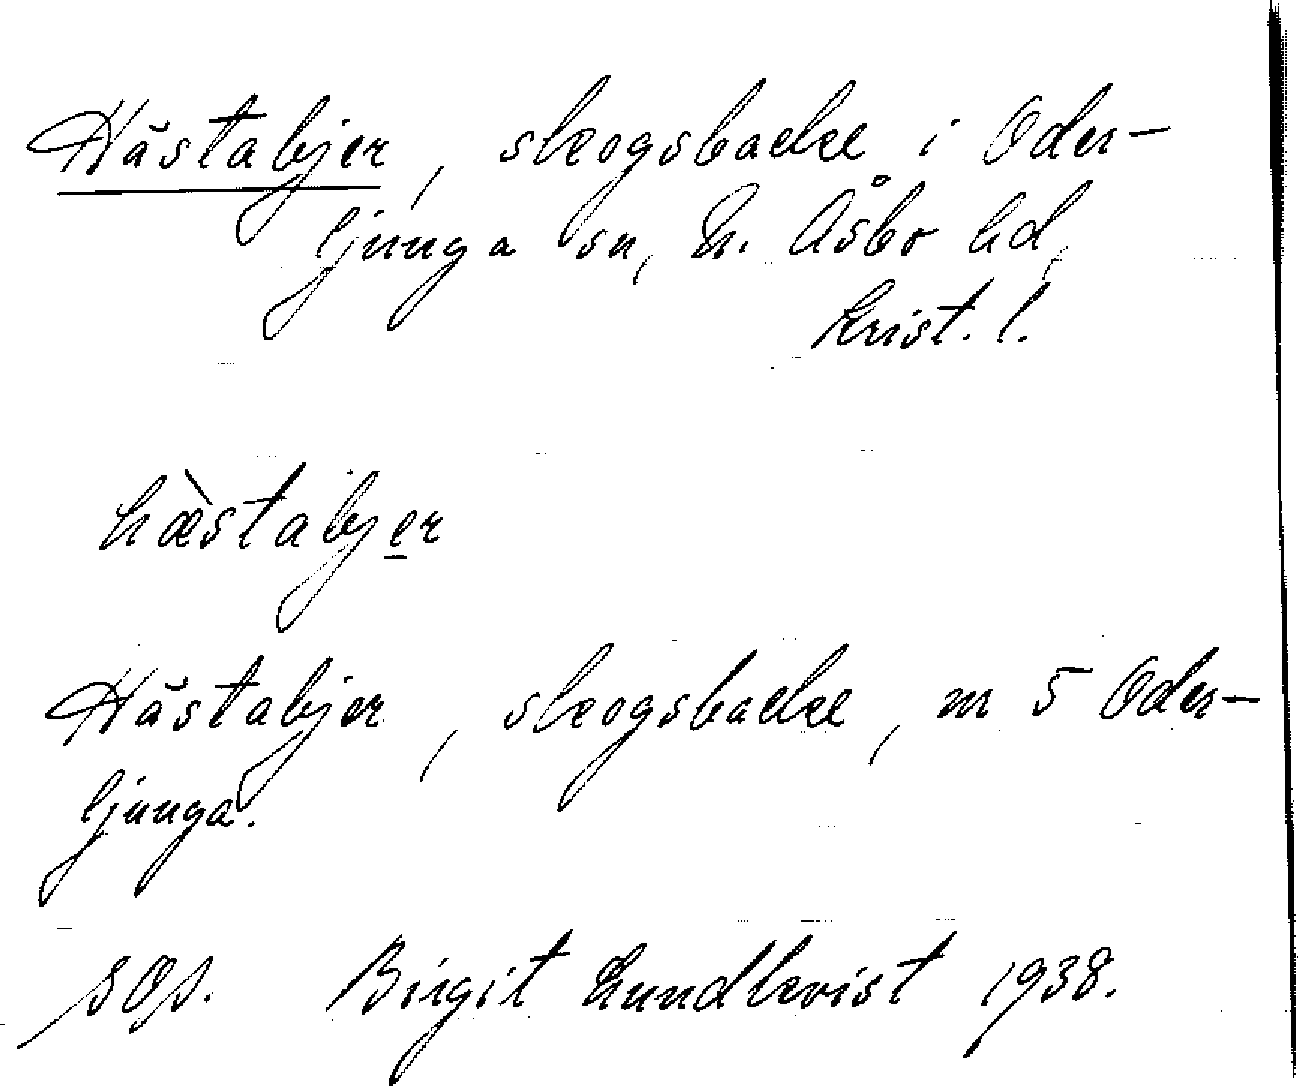 Hästabjer, skogsbacke i Oder-
ljunga sn, N. Åsbo hd,
Krist. l.
hæ̀stabjer
Hästabjer, skogsbacke, m 5 Oder-
ljunga.
SOs. Birgit Lundkvist 1938.